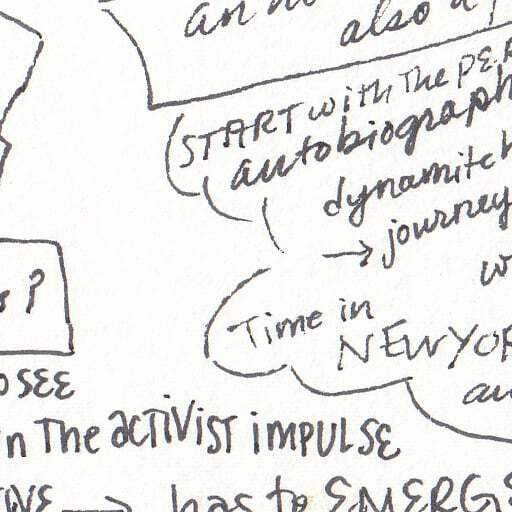 also a
START with The PER
autobiograph
dynamite
→ journey
?
Time in
NEW YOR
O SEE
in The activist impulse
→ has to EMERGE